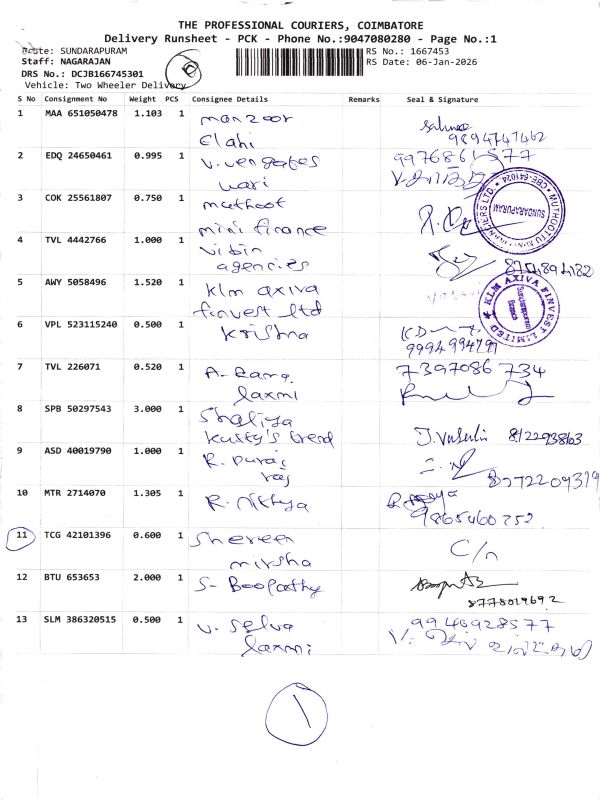 THE PROFESSIONAL COURIERS, COIMBATORE
Delivery Runsheet - PCK - Phone No.:9047080280 - Page No.:1
Route: SUNDARAPURAM
RS No.: 1667453
Staff: NAGARAJAN
RS Date: 06-Jan-2026
DRS No.: DCJB166745301
Vehicle: Two Wheeler Delivery
S No Consignment No Weight PCS Consignee Details Remarks Seal & Signature
1 MAA 651050478 1.103 1 manzoor
elahi 9894747462
2 EDQ 24650461 0.995 1 v.vengates 9976861577
wari
3 COK 25561807 0.750 1 muthoot
mini finance
SUNDARAPURAM
4 TVL 4442766 1.000 1 vibin
agencies
5 AWY 5058496 1.520 1 klm axiva
finvest ltd
KLM AXIVA FINVEST LIMITED
Sundarapuram
Branch
6 VPL 523115240 0.500 1 krishna
7 TVL 226071 0.520 1 A-Rama 7397086734
laxmi
8 SPB 50297543 3.000 1 Shaliya
kutty's trend
9 ASD 40019790 1.000 1 R. puraj
raj
10 MTR 2714070 1.305 1 R. nithya
9865460752
11 TCG 42101396 0.600 1 shereen C/n
mirsha
12 BTU 653653 2.000 1 S- Boopathy
8778019692
13 SLM 386320515 0.500 1 v. selva 9946928577
laxmi
1